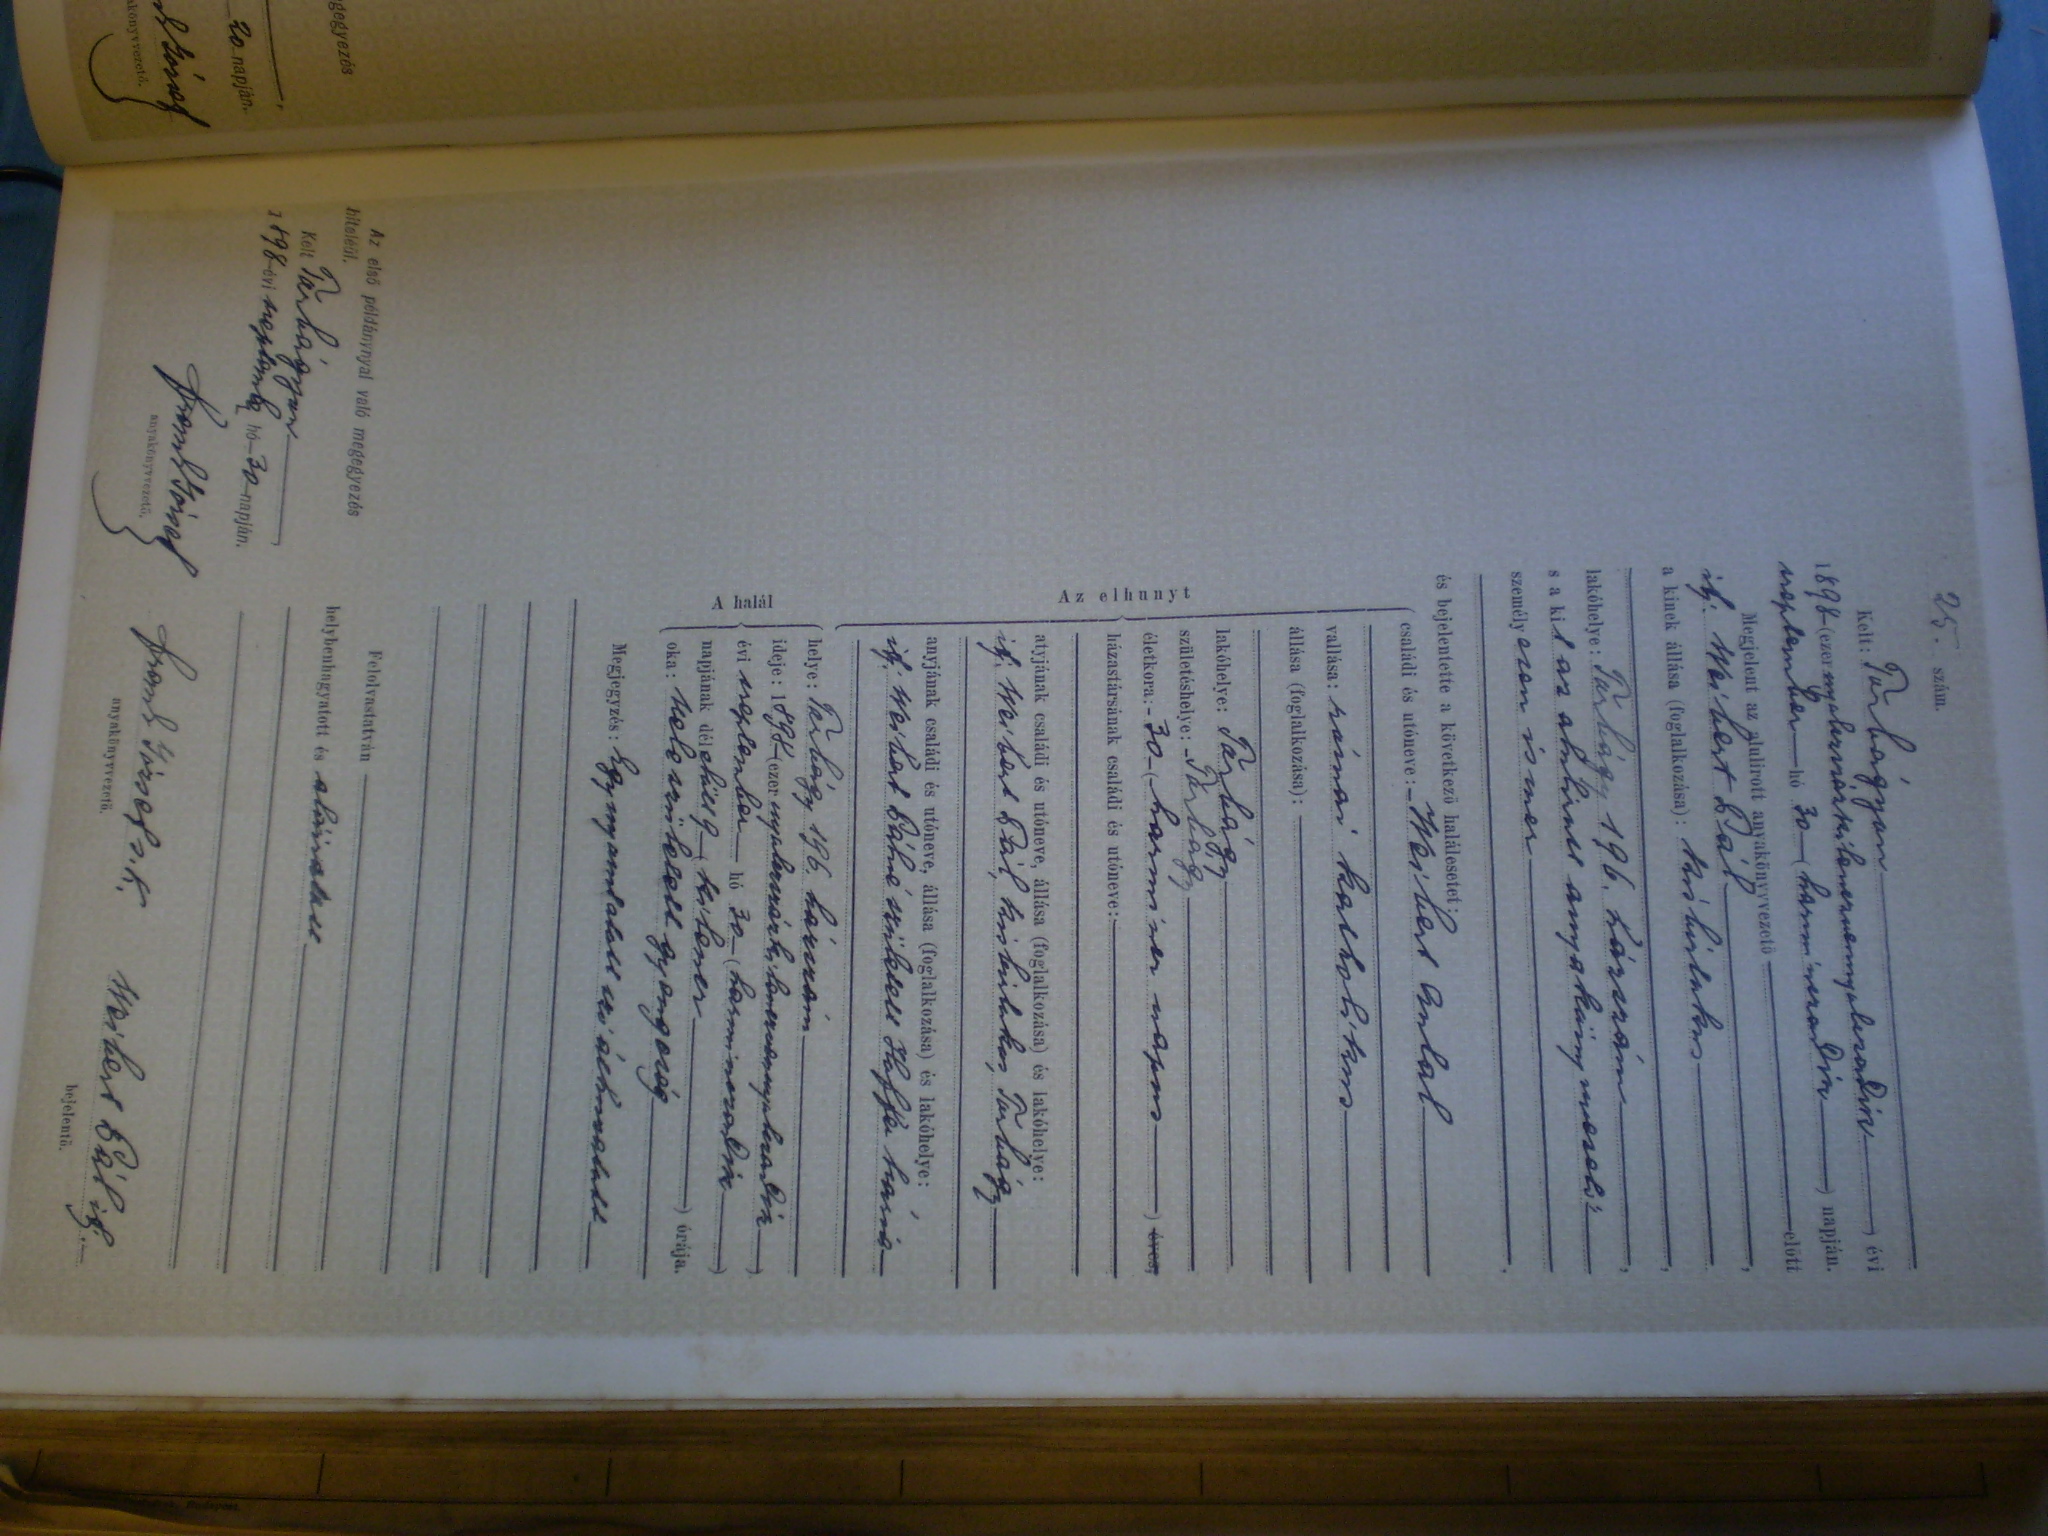 25. szám.
Kelt: Törbágyon
1898 (ezernyolczszázkilenczvennyolczadik) évi
szeptember hó 30 (harminczadik) napján.
Megjelent az alulirott anyakönyvvezető előtt
ifj. Weibert Pál,
a kinek állása (foglalkozása): kisbirtokos,
lakóhelye: Törbágy 196. házszám,
s a kit az alulirt anyakönyvvezető
személyesen ismer,
és bejelentette a következő halálesetet:
Az elhunyt
családi és utóneve: Weibert Antal
vallása: római katholikus
állása (foglalkozása):
lakóhelye: Törbágy
születéshelye: Törbágy
életkora: 30 (harmincz napos) éves,
házastársának családi és utóneve:
atyjának családi és utóneve, állása (foglalkozása) és lakóhelye:
ifj. Weibert Pál, kisbirtokos, Törbágy
anyjának családi és utóneve, állása (foglalkozása) és lakóhelye:
ifj. Weibert Pálné született
A halál
helye: Törbágy 196. házszám
ideje: 1898 (ezernyolczszázkilenczvennyolczadik)
évi szeptember hó 30 (harminczadik)
napjának délelőtt 9 (kilencz) órája.
oka: vele született gyengeség
Megjegyzés: Egy nyomtatott szó áthuzatott
Felolvastatván
helybenhagyatott és aláiratott
József s. k.
anyakönyvvezető.
Weibert Pál ifj.
bejelentő.
Az első példánynyal való megegyezés
hiteléül.
Kelt Törbágyon
1898 évi szeptember hó 30 napján.
József
anyakönyvvezető.
gegyezés
20 napján.
József
akönyvvezető.